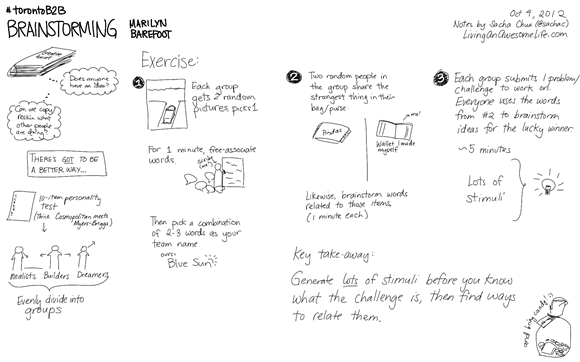 #torontoB2B
BRAINSTORMING
MARILYN
BAREFOOT
Oct 4, 2012
Notes by Sacha Chua (@sachac)
LivingAnAwesomeLife.com
Creative
Brief
Does anyone
have an idea?
Can we copy/
reskin what
other people
are doing?
THERE'S GOT TO BE
A BETTER WAY...
10-item personality
test
(think Cosmopolitan meets
Myers-Briggs)
Realists Builders Dreamers
Evenly divide into
groups
Exercise:
1
Each group
gets 2 random
pictures, picks 1
For 1 minute, free-associate
words.
Then pick a combination
of 2-3 words as your
team name.
ours:
Blue Sun
2
Two random people in
the group share the
strangest thing in their
bag/purse.
me!
Wallet I made
myself
Likewise, brainstorm words
related to those items.
(1 minute each)
3
Each group submits 1 problem/
challenge to work on.
Everyone uses the words
from #2 to brainstorm
ideas for the lucky winner.
~5 minutes
Lots of
stimuli
Key take-away:
Generate lots of stimuli before you know
what the challenge is, then find ways
to relate them.
and bring candy! :)